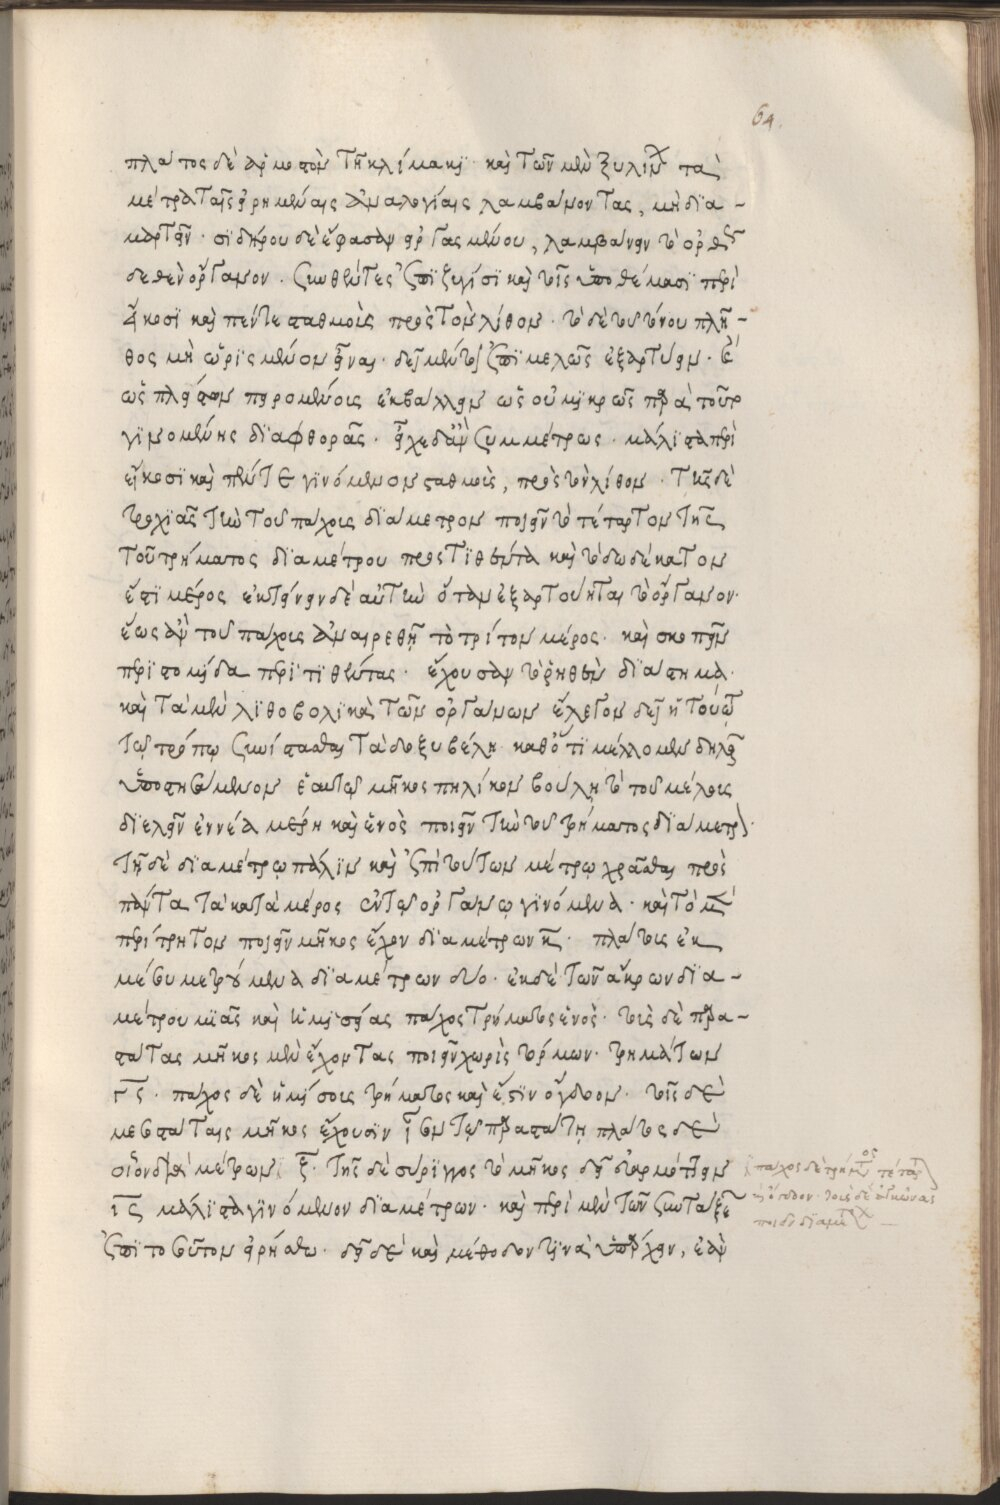 64.
πλάτος δὲ ἁρμοστὸν τῆ κλίμακι· καὶ τῶν μὲν ξυλίνων τὰ
μέτρα ταῖς εἰρημέναις ἀναλογίαις λαμβάνοντας, μὴ δια-
μαρτεῖν· σιδήρου δὲ ἔφασαν ἐργασμένου, λαμβάνειν τὸ ὀρθῶς
δεθὲν ὄργανον· συνθέντες ἐπιζυγίσι καὶ τοῖς ὑποθέμασι περὶ
εἴκοσι καὶ πέντε σταθμοὺς πρὸς τὸν λίθον· τὸ δὲ τοῦ τόνου πλῆ-
θος μὴ ὡρισμένον εἶναι· δεῖ μέντοι ἐπιμελῶς ἐξαρτύειν·
ὡς πλεῖστον πειρομένους ἐκβάλλειν ὡς οὐ μικρῶς παρὰ τοῦτο
γινομένης διαφθορᾶς· εἶχε δ' ἂν συμμέτρως· μάλιστα περὶ
εἴκοσι καὶ πέντε γινόμενον σταθμοὺς, πρὸς τὸν λίθον· τῆς δὲ
τροχιᾶς τὴν τοῦ πάχους διάμετρον ποιεῖν τὸ τέταρτον τῆς
τοῦ τρήματος διαμέτρου προστιθέντα καὶ τὸ δωδέκατον
ἔτι μέρος ἐκτείνειν δὲ αὐτὴν ὅταν ἐξαρτύηται τὸ ὄργανον·
ἕως ἂν τοῦ πάχους ἀναιρεθῆ τὸ τρίτον μέρος· καὶ σκοπεῖν
περιστομίδα περιτιθέντας· ἔχουσαν τὸ ῥηθὲν διάστημα·
καὶ τὰ μὲν λιθοβολικὰ τῶν ὀργάνων ἔλεγον δεῖν τούτω
τῷ τρόπῳ συνίστασθαι τὰ δ' ὀξυβελῆ· καθότι μέλλομεν δηλοῦν
ὑποστησάμενον ἑαυτῷ μῆκος πηλίκον βούλη τὸ τοῦ μέλους
διελεῖν ἐννέα μέρη καὶ ἑνὸς ποιεῖν τὴν τοῦ τρήματος διάμετρ
τῆ δὲ διαμέτρῳ πάλιν καὶ ἐπὶ τούτων μέτρῳ χρᾶσθαι πρὸς
πάντα τὰ κατὰ μέρος ἐν τῷ ὀργάνῳ γινόμενα· καὶ τὸ μὲν
περίτρητον ποιεῖν μῆκος ἔχον διαμέτρων· πλάτους ἐκ
μέσου μετρούμενα διαμέτρων δύο· ἐκ δὲ τῶν ἄκρων δια-
μέτρου μιᾶς καὶ ἡμισείας πάχος τρήματος ἑνός· τοὺς δὲ παρα-
στάτας μῆκος μὲν ἔχοντας ποιεῖν χωρὶς τόρμων· τρημάτων
πάχος δὲ ἡμίσους τρήματος καὶ ἔτιν ὄγδοον· τοῖς δὲ
μεσοστάταις μῆκος ἔχουσιν ἴσον τῷ παραστάτη πλάτος δὲ
οἱονδὶ μέτρων ξ· τῆς δὲ σύριγγος τὸ μῆκος δεῖ διαρμόττειν
ις μάλιστα γινόμενον διαμέτρων· καὶ περὶ μὲν τῶν συντάξε
ἐπὶ τοσοῦτον εἰρήσθω· δεῖ δὲ καὶ μέθοδον τινὰ ὑπάρχειν, ἐὰν
πάχος δὲ τρήματος τέταρ
ποιεῖν διαμέ